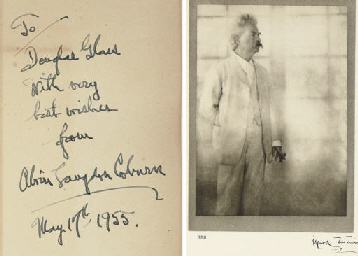 To
Douglas Glass
With very
best wishes
from
Alvin Langdon Coburn
May 17th 1955.
Mark Twain